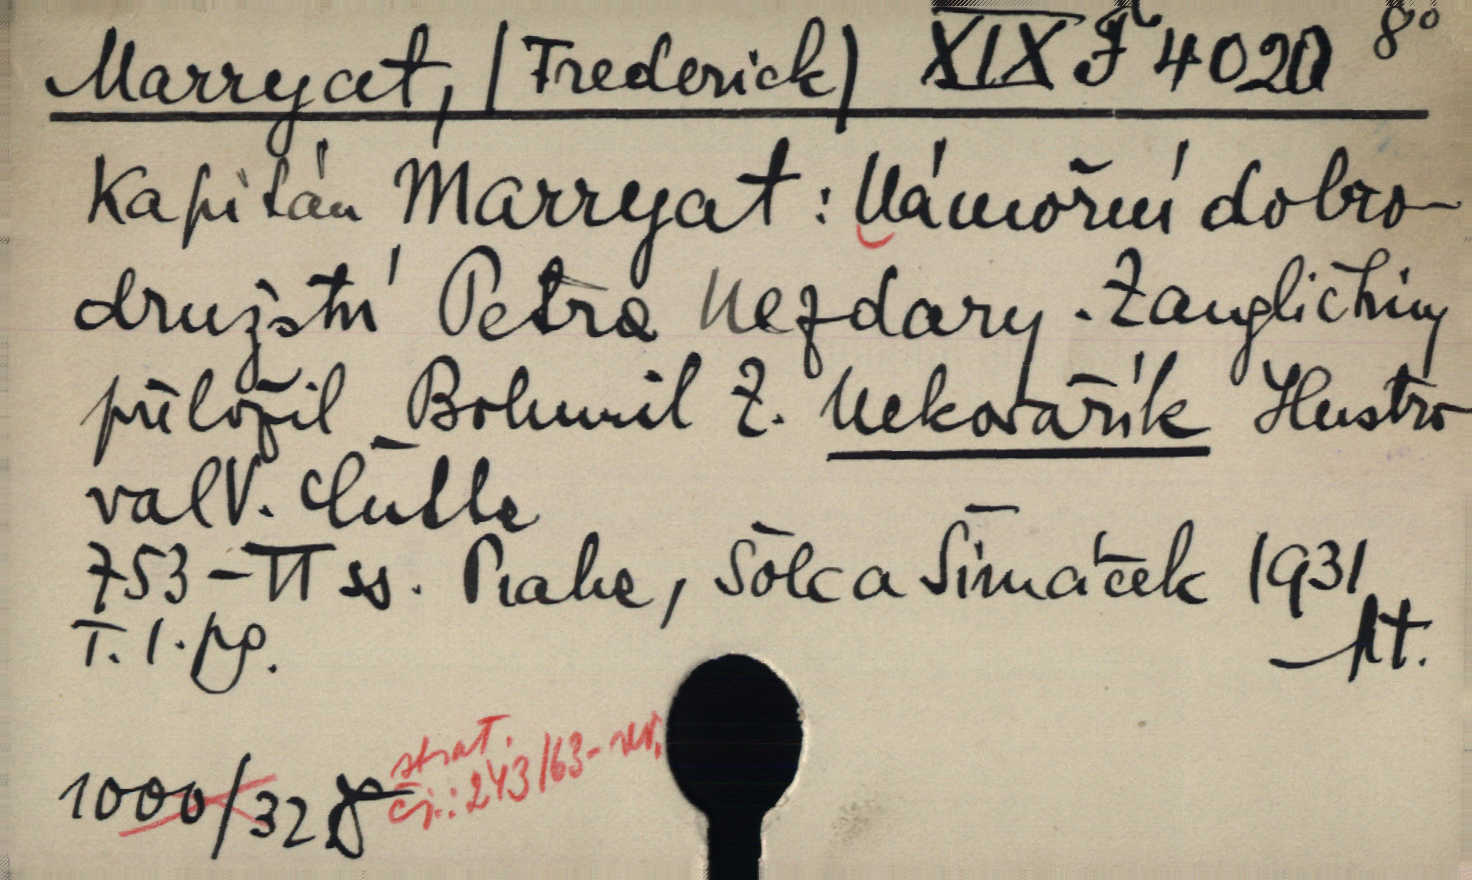 Marryat, (Frederick) XIX F 4020 8°
Kapitán Marryat: Námořní dobro-
družství Petra Nezdary. Z angličtiny
přeložil Bohumil Z. Nekovařík Ilustro-
val V. Čutta
753-II ss. Praha, Šolc a Šimáček 1931
T. 1. pg. At.
strat.
1000/32 čj.: 243/63-rev.